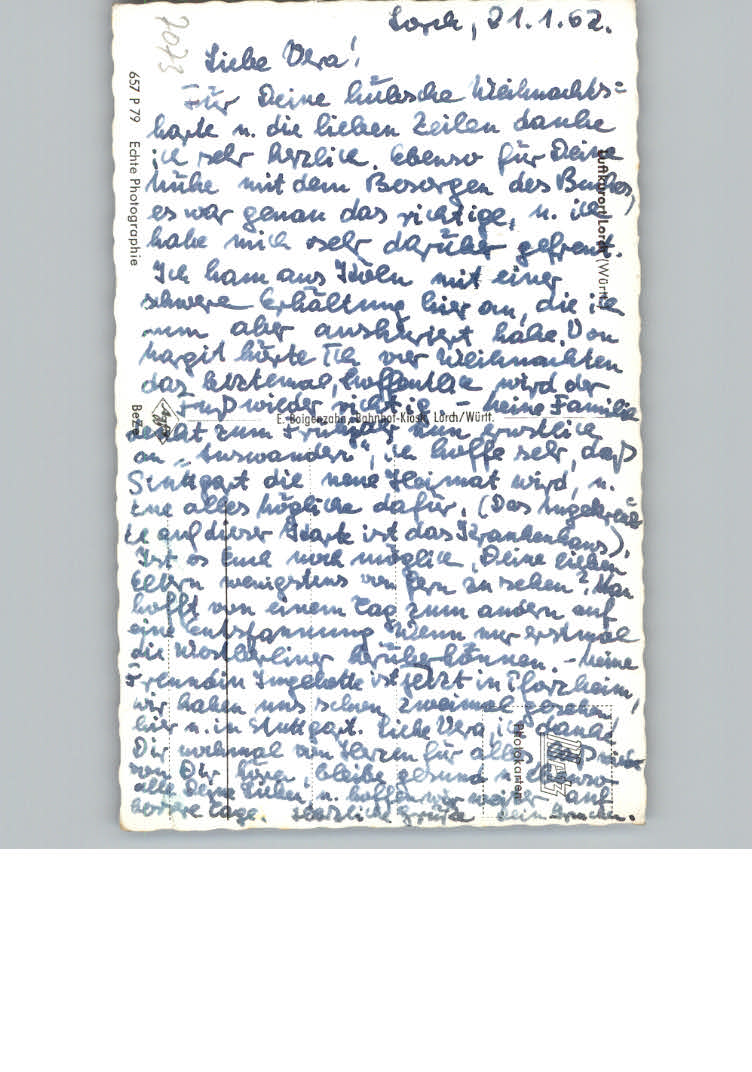 7073
Lorch, 21.1.62.
Liebe Vera!
Für Deine hübsche Weihnachts=
karte u. die lieben Zeilen danke
ich sehr herzlich. Ebenso für Deine
Mühe mit dem Besorgen des Buches,
es war genau das richtige, u. ich
habe mich sehr darüber gefreut.
Ich kam aus Köln mit einer
schweren Erkältung hier an, die ich
nun aber auskuriert habe. Von
Margit hörte ich vor Weihnachten
das letztemal, hoffentlich wird der
Fuß wieder richtig – Meine Familie
denkt zum Frühjahr nun ernstlich
an "Auswandern", ich hoffe sehr, daß
Stuttgart die neue Heimat wird, u.
tue alles mögliche dafür. (Das Angekreuz
te auf dieser Karte ist das Krankenhaus).
Ist es Euch noch möglich, Deine lieben
Eltern wenigstens von fern zu sehen? Man
hofft von einem Tag zum andern auf
eine Entspannung. Wenn nur erstmal
die Westberliner rüber können. – Meine
Freundin Ingelotte ist jetzt in Pforzheim,
wir haben uns schon zweimal gesehen,
hier u. in Stuttgart. Liebe Vera, ich danke
Dir nochmal von Herzen für alles,
von Dir hören, bleibe gesund u. ebenso
alle Deine Lieben, u. hoffen wir weiter auf
bessere Tage. Herzliche Grüße Dein
657 P 79 Echte Photographie
Luftkurort Lorch (Württ.)
E. Baigenzahn, Bahnhof-Kiosk, Lorch/Württ.
Metz
Photokarten